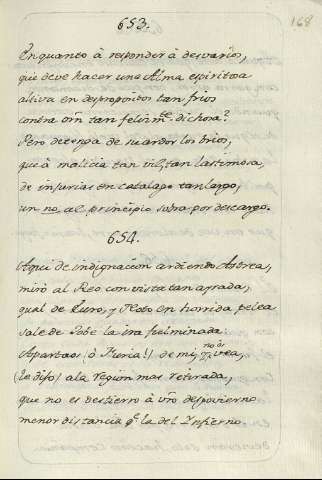 168
653.
Enquanto à responder à desvarios,
què deve hacer una Alma espiritosa
altiva en despropositos tan frios
contra orn tan felizm.te dichosa?
Pero detenga de su ardor los brios,
que à malicia tan vil, tan lastimosa,
de injurias en catalago tan largo,
un no, al principio sobra por descargo.
654.
Aqui de indignacion ardiendo Astrea,
mirò al Reo con vista tan ayrada,
qual de Euro, y Noto en horrida pelea
sale de Jobe la ira fulminada
Apartaos (ò Furia!) de mi, no os vea,
(le dijo) a la region mas retirada,
que no es destierro à vro despovierno
menor distancia q.e la del Infierno